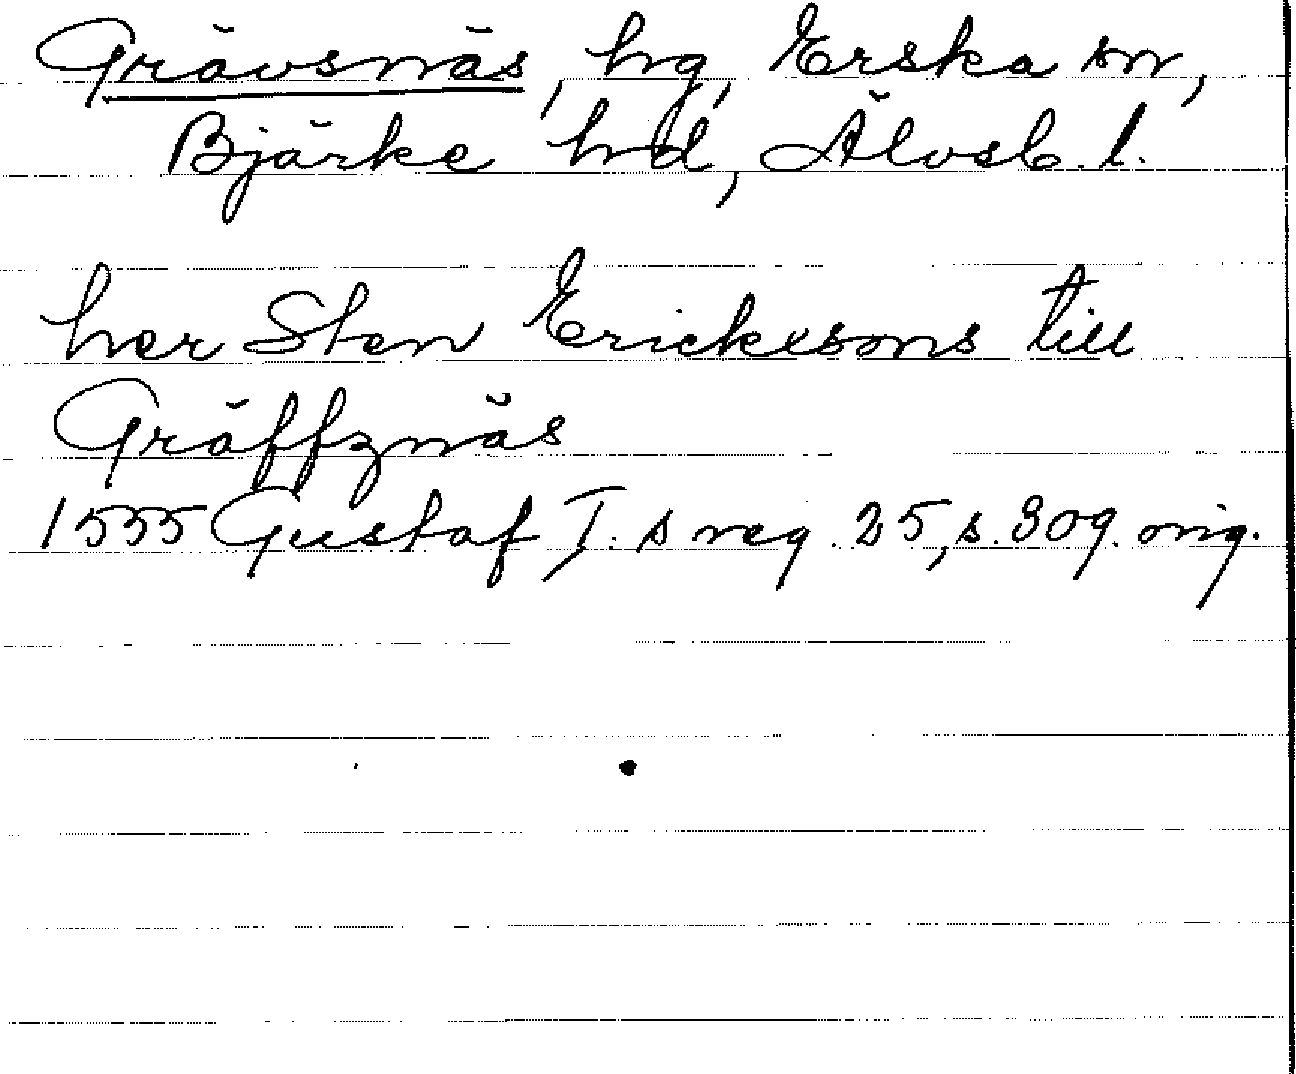 Grävsnäs, hg, Erska sn,
Bjärke hd, Älvsb. l.
her Sten Erickesons till
Gräffznäs
1555 Gustaf I. s reg. 25, s. 309. orig.